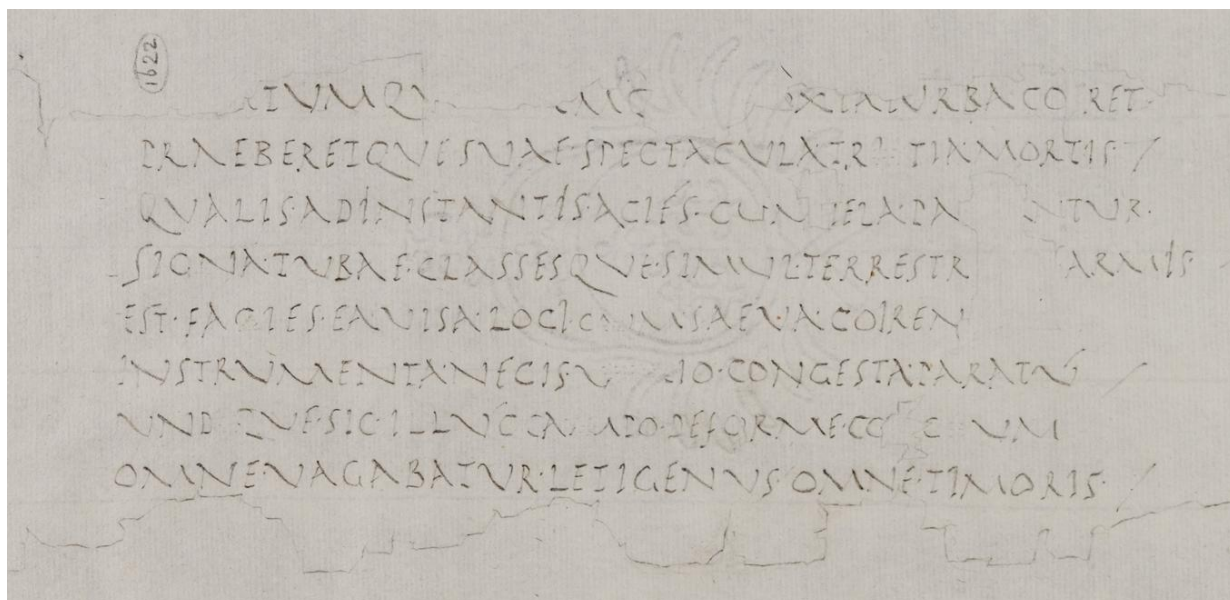 1622
TVMQV NOXIA·TVRBA CO RET
PRAEBERETQVE SVAE·SPECTACVLA·TR TIA MORTIS /
QVALIS·AD INSTANTIS ACIES·CVM TELA·PA NTVR·
SIGNA·TVBAE·CLASSESQVE·SIMVL·TERRESTR ARMIS
EST·FACIES·EA VISA·LOCI·CVM SAEVA·COIREN
INSTRVMENTA·NECIS·V IO·CONGESTA PARATV /
VND QVE·SIC·ILLVC CA PO·DEFORME·CO C VM
OMNE·VAGABATVR·LETI GENVS·OMNE·TIMORIS· /